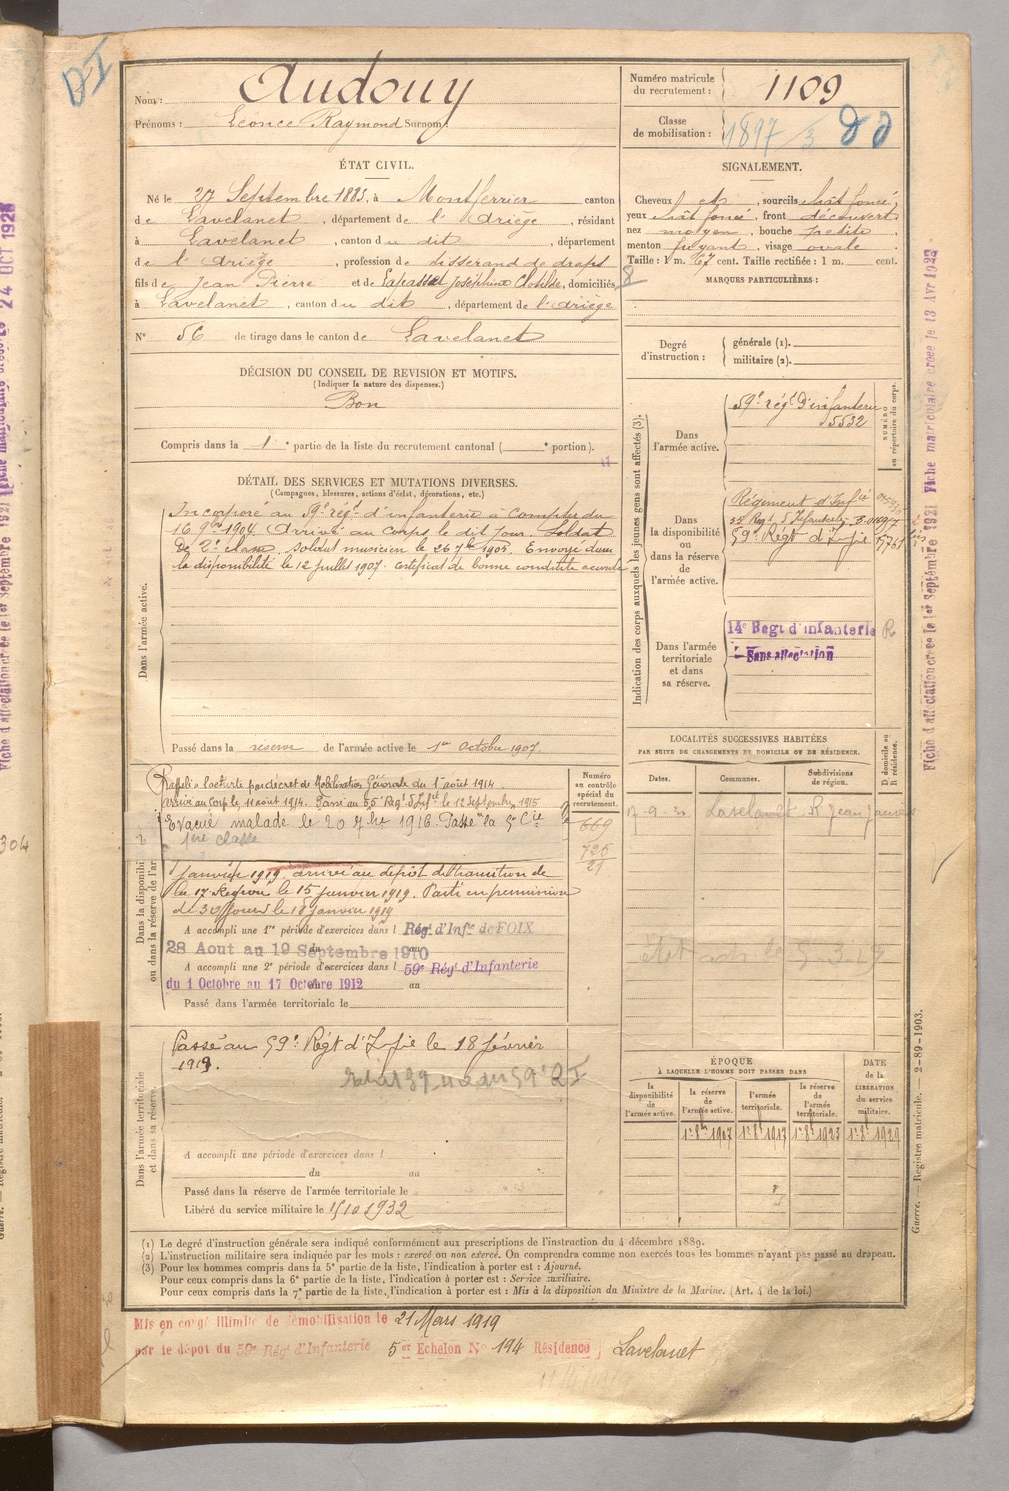 DI
Nom : Audouy
Prénoms : Léonce Raymond Surnom :
Numéro matricule du recrutement : 1109
Classe de mobilisation : 1897/3
ÉTAT CIVIL.
Né le 27 Septembre 1883, à Montferrier canton
de Lavelanet, département de l'Ariège, résidant
à Lavelanet, canton du dit, département
de l'Ariège, profession de tisserand de draps
fils de Jean Pierre et de Joséphine Clotilde, domiciliés
à Lavelanet, canton du dit, département de l'ariège
SIGNALEMENT.
Cheveux et, sourcils chât foncé,
yeux chât foncé, front découvert
nez moyen, bouche petite,
menton fuyant, visage ovale.
Taille : 1 m. 67 cent. Taille rectifiée : 1 m. cent.
8
MARQUES PARTICULIÈRES :
N° 56 de tirage dans le canton de Lavelanet
Degré d'instruction : générale (1).
militaire (2).
DÉCISION DU CONSEIL DE REVISION ET MOTIFS.
(Indiquer la nature des dispenses.)
Bon
Compris dans la 1e partie de la liste du recrutement cantonal ( e portion).
DÉTAIL DES SERVICES ET MUTATIONS DIVERSES.
(Campagnes, blessures, actions d'éclat, décorations, etc.)
Dans l'armée active.
Incorporé au 59e régt d'infanterie à compter du
16 9bre 1904. Arrivé au corps le dit jour. Soldat
de 2e classe. Soldat musicien le 26 7bre 1905. Envoyé dans
la disponibilité le 12 juillet 1907. Certificat de bonne conduite accordé
Passé dans la réserve de l'armée active le 1er Octobre 1907
Indication des corps auxquels les jeunes gens sont affectés (3).
NUMÉRO au répertoire du corps.
Dans l'armée active.
59e régt d'infanterie
5532
Dans la disponibilité ou dans la réserve de l'armée active.
Régiment d'Inftie
59e Régt d'Infie
Dans l'armée territoriale et dans sa réserve.
14e Regt d'infanterie R
Sans affectation
Dans la disponibilité ou dans la réserve de l'armée active.
Numéro au contrôle spécial du recrutement.
Rappelé à l'activité par décret de Mobilisation Générale du 1er août 1914
arrivé au Corps le 11 août 1914. Passé au 55e Regt d'Inftie le 12 Septembre 1915
Evacué malade le 20 7bre 1916 Passé à la 5e Cie
1ère classe
669
725
21
janvier 1919. arrivé au dépôt de transition de
la 17e Région le 15 janvier 1919. Parti en permission
de 30 jours le 18 janvier 1919
A accompli une 1re période d'exercices dans l Régt d'Infie de FOIX
du 28 Aout au 19 Septembre 1910
A accompli une 2e période d'exercices dans l 59e Régt d'Infanterie
du 1 Octobre au 17 Octobre 1912
Passé dans l'armée territoriale le
LOCALITÉS SUCCESSIVES HABITÉES
PAR SUITE DE CHANGEMENTS DE DOMICILE OU DE RÉSIDENCE.
Dates. Communes. Subdivisions de région. D. domicile ou R. résidence.
Lavelanet R Jean Jaurès
Dans l'armée territoriale et dans sa réserve.
Passé au 59e Régt d'Infie le 18 février
1919.
A accompli une période d'exercices dans l
du au
Passé dans la réserve de l'armée territoriale le
Libéré du service militaire le 15/10 1932
ÉPOQUE
À LAQUELLE L'HOMME DOIT PASSER DANS
la disponibilité de l'armée active.
la réserve de l'armée active.
l'armée territoriale.
la réserve de l'armée territoriale.
DATE de la LIBÉRATION du service militaire.
1er 8bre 1907 1er 8bre 1917 1er 8bre 1923 1er 8bre 1929
(1) Le degré d'instruction générale sera indiqué conformément aux prescriptions de l'instruction du 4 décembre 1889.
(2) L'instruction militaire sera indiquée par les mots : exercé ou non exercé. On comprendra comme non exercés tous les hommes n'ayant pas passé au drapeau.
(3) Pour les hommes compris dans la 5e partie de la liste, l'indication à porter est : Ajourné.
Pour ceux compris dans la 6e partie de la liste, l'indication à porter est : Service auxiliaire.
Pour ceux compris dans la 7e partie de la liste, l'indication à porter est : Mis à la disposition du Ministre de la Marine. (Art. 4 de la loi.)
Mis en congé illimité de démobilisation le 21 Mars 1919
par le dépôt du 59e Régt d'Infanterie 5er Echelon No 194 Résidence Lavelanet
Guerre. — Registre matricule. — 2-89-1903.
Fiche d'affectation créée le 1er Septembre 1921 Fiche matriculaire créée le 13 Avr 1923
24 OCT 1928
304